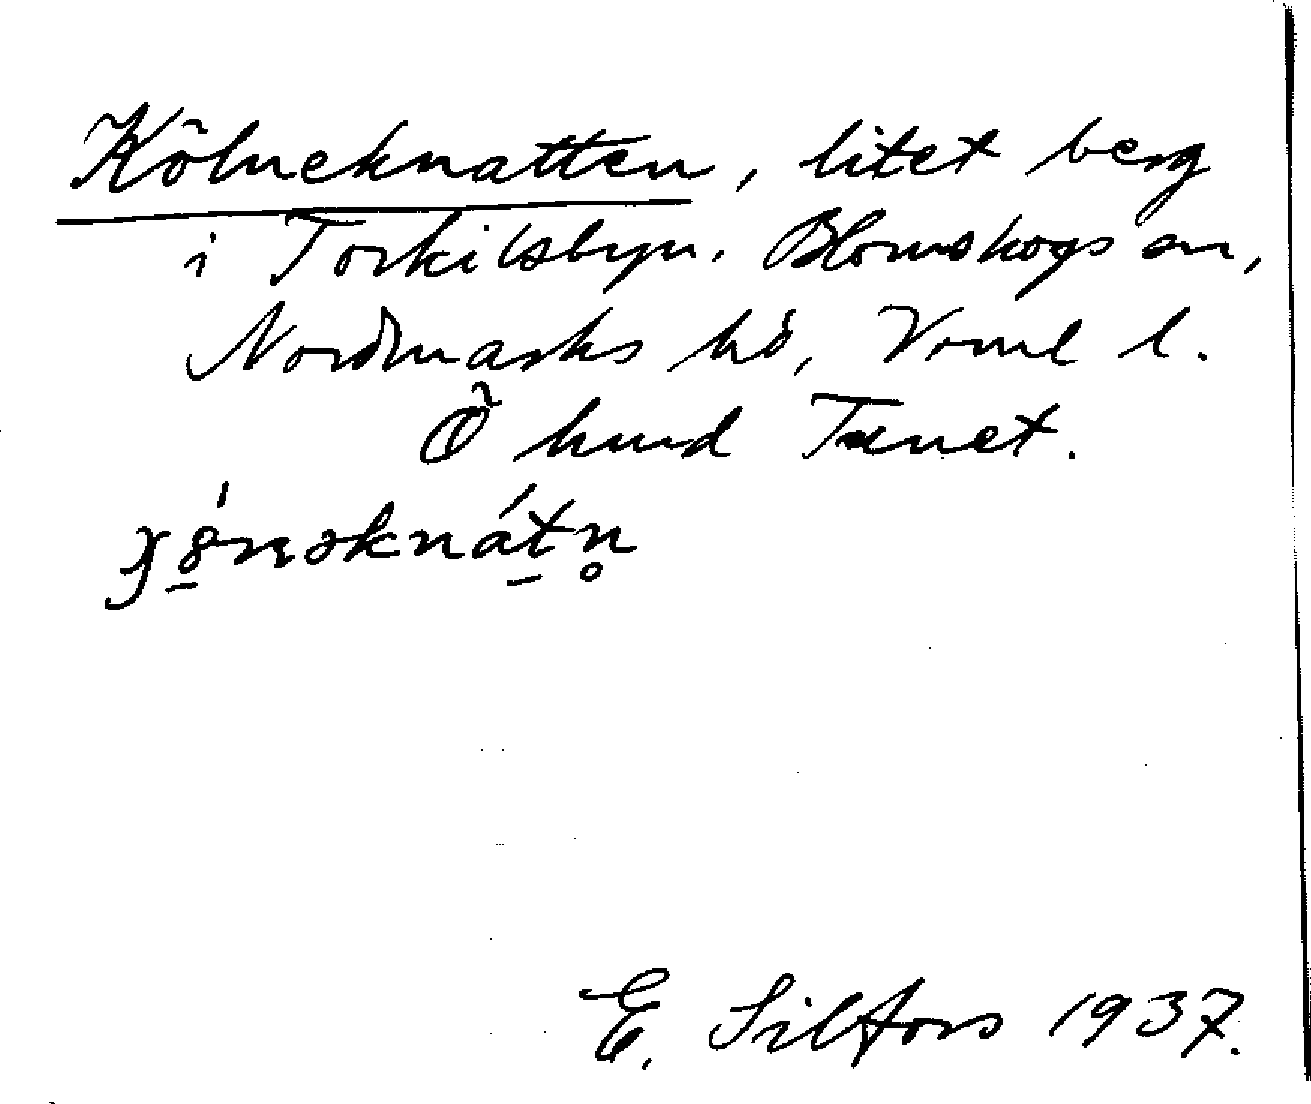 Kölneknatten, litet berg
i Torkilsbyn. Blomskogs sn,
Nordmarks hd, Verml l.
Ö hund Tanet.
E. Silfors 1937.